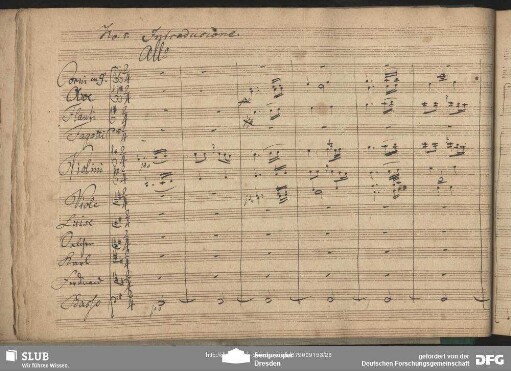 No. 1. Introduzione.
Allo
Corni in G.
Oboe
Flauti
Fagotti
Violini
Viole
Luise
Karl
Ferdinand
Basso
SLUB
Wir führen Wissen.
http://
Dresden
gefördert von der
Deutschen Forschungsgemeinschaft
DFG